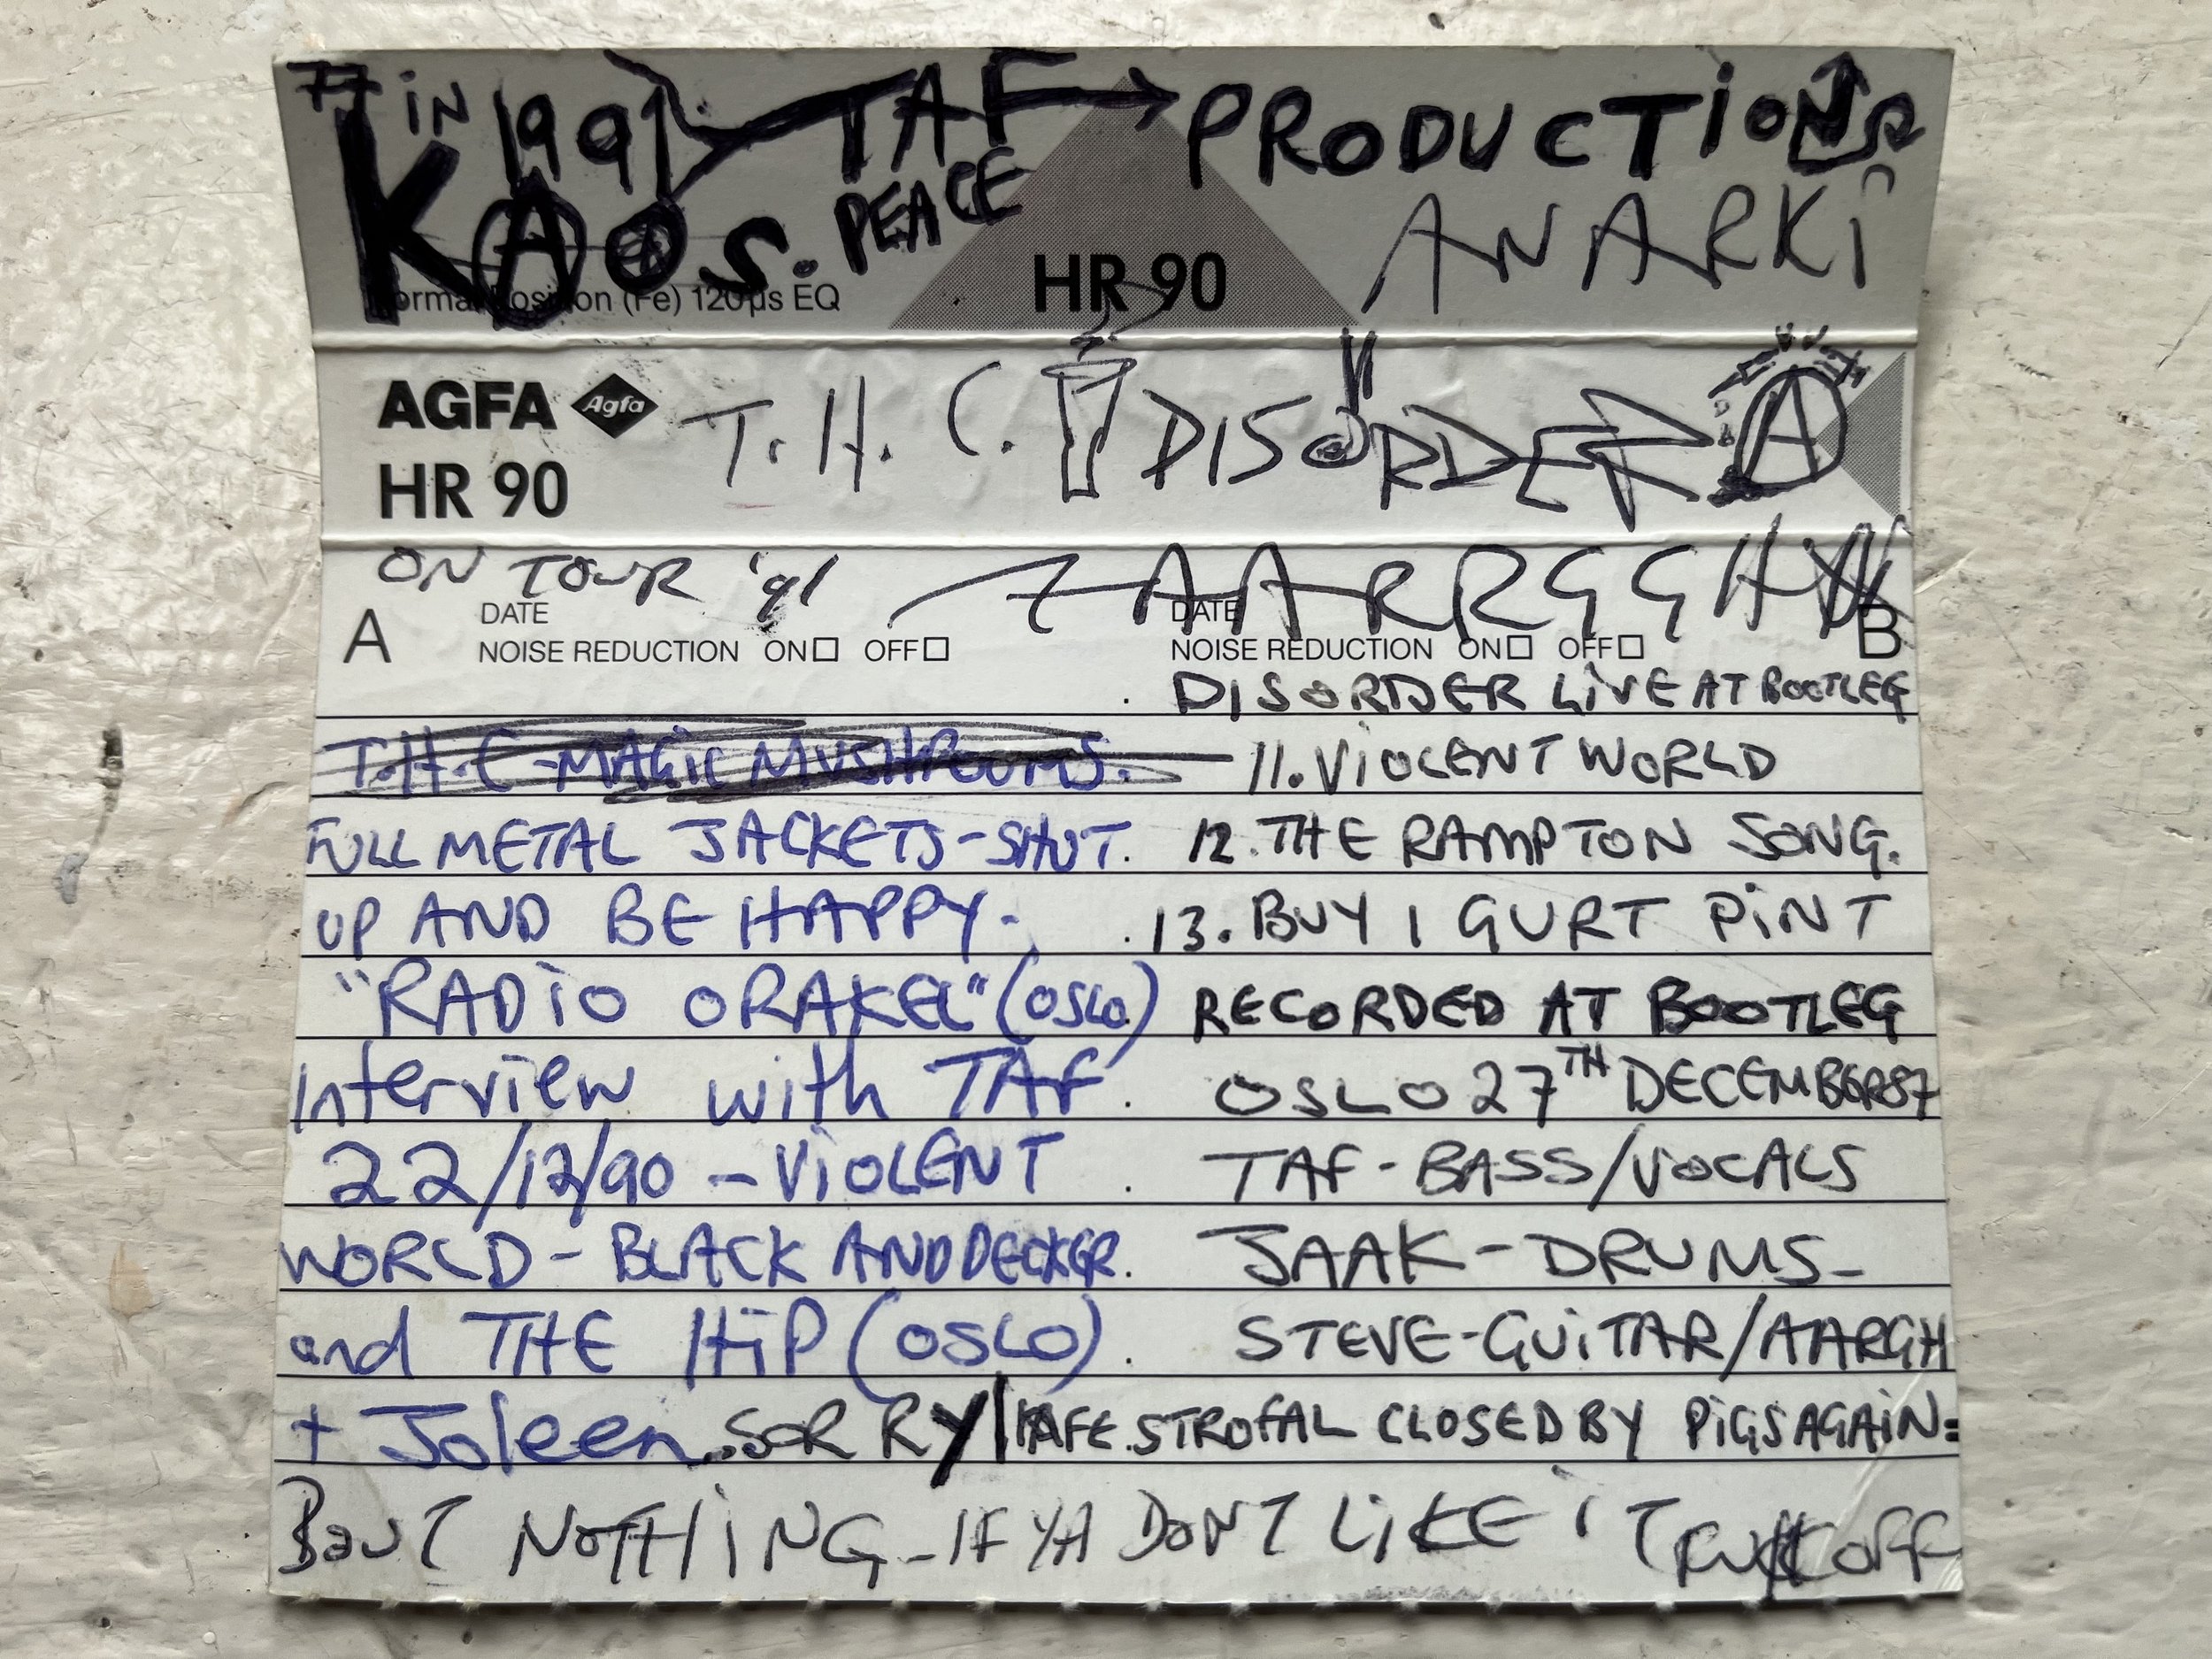 77 in 1991 TAF PRODUCTIONS
KAOS. PEACE ANARKi
Normal Position (Fe) 120µs EQ HR 90
AGFA Agfa T.H.C. DISORDER A
HR 90
ON TOUR '91 AARRGGH
A DATE DATE B
NOISE REDUCTION ON OFF NOISE REDUCTION ON OFF
DISORDER LiVE AT BOOTLEG
T.H.C-MAGiC MUSHROOMS. 11. ViOLENT WORLD
FULL METAL JACKETS-SHUT. 12. THE RAMPTON SONG.
UP AND BE HAPPY- 13. BUY I GURT PiNT
"RADiO ORAKEL" (OSLO) RECORDED AT BOOTLEG
Interview with TAF. OSLO 27TH DECEMBER 87
22/12/90 - ViOLENT TAF - BASS/VOCALS
WORLD - BLACK AND DECKER. JAAK - DRUMS-
and THE HiP (OSLO) STEVE-GUiTAR/AARGH
+ Joleen. SORRY/KAFE. STROFAL CLOSED BY PiGS AGAiN=
NOTHiNG-IF YA DONT LiKE iT FUCK OFF